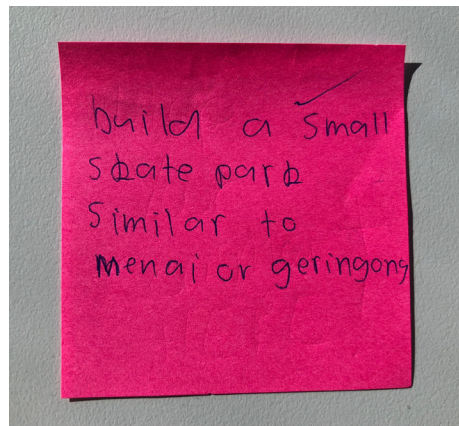 build a small
skate park
similar to
menai or geringong